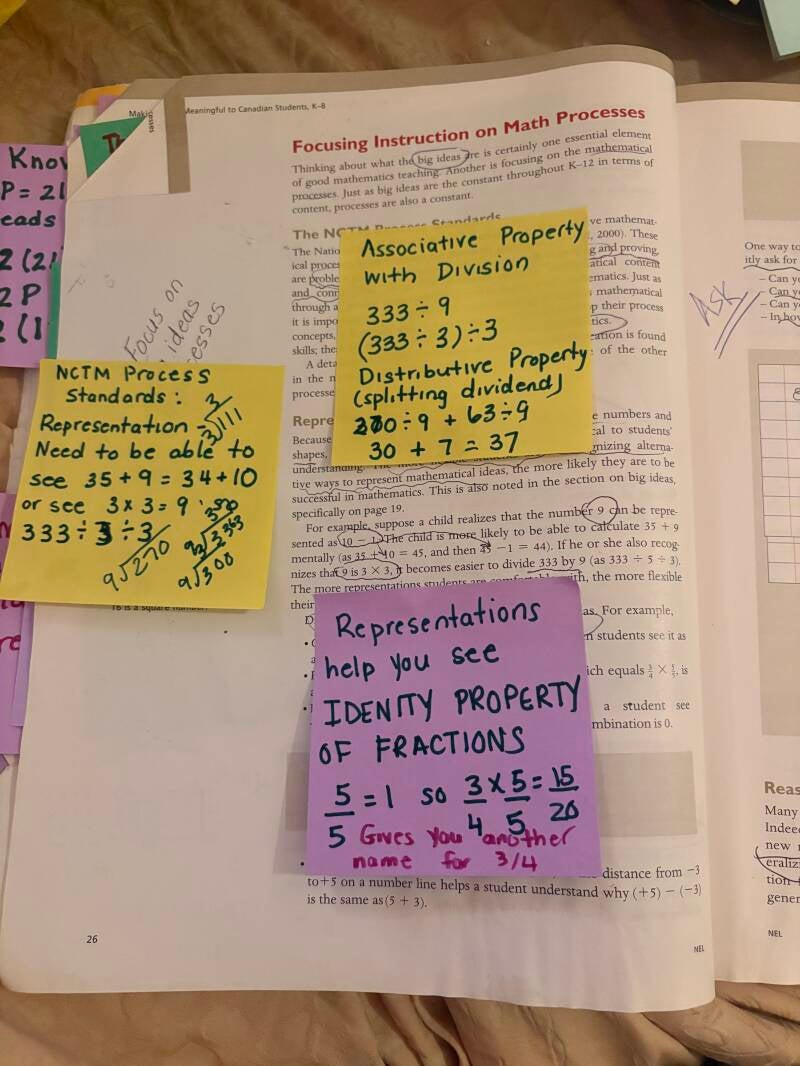 Meaningful to Canadian Students, K–8
Focusing Instruction on Math Processes
Thinking about what the big ideas are is certainly one essential element
of good mathematics teaching. Another is focusing on the mathematical
processes. Just as big ideas are the constant throughout K–12 in terms of
content, processes are also a constant.
The NCTM Process Standards
The Natio
ical proce
are proble
and conn
through a
it is impo
concepts,
skills; the
A deta
in the n
processe
ve mathemat-
, 2000). These
g and proving,
atical content
ematics. Just as
mathematical
p their process
tics.
cation is found
of the other
Associative Property
with Division
333 ÷ 9
(333 ÷ 3) ÷ 3
Distributive Property
(splitting dividend)
270 ÷ 9 + 63 ÷ 9
30 + 7 = 37
Focus on
ideas
esses
Know
P = 2l
eads
2 (2l
2 P
2 (1
NCTM Process
Standards:
Representation -
Need to be able to
see 35 + 9 = 34 + 10
or see 3 x 3 = 9
333 ÷ 3 ÷ 3
3
3 111
9 270
9 300
Repre
Because
shapes,
understanding.
e numbers and
cal to students'
gnizing alterna-
tive ways to represent mathematical ideas, the more likely they are to be
successful in mathematics. This is also noted in the section on big ideas,
specifically on page 19.
For example, suppose a child realizes that the number 9 can be repre-
sented as 10 – 1. The child is more likely to be able to calculate 35 + 9
mentally (as 35 + 10 = 45, and then 45 – 1 = 44). If he or she also recog-
nizes that 9 is 3 × 3, it becomes easier to divide 333 by 9 (as 333 ÷ 5 ÷ 3).
The more representations students are comfortable with, the more flexible
their
as. For example,
n students see it as
ich equals 3/4 × 5/5, is
a student see
mbination is 0.
16 is a square number.
Representations
help you see
IDENITY PROPERTY
OF FRACTIONS
5/5 = 1 so 3/4 x 5/5 = 15/20
Gives you another
name for 3/4
distance from –3
to +5 on a number line helps a student understand why (+5) – (–3)
is the same as (5 + 3).
26
NEL
One way to
itly ask for
– Can yo
– Can yo
– Can yo
– In how
Ask
Reas
Many
Indeed
new r
eraliz
tion
gener
NEL